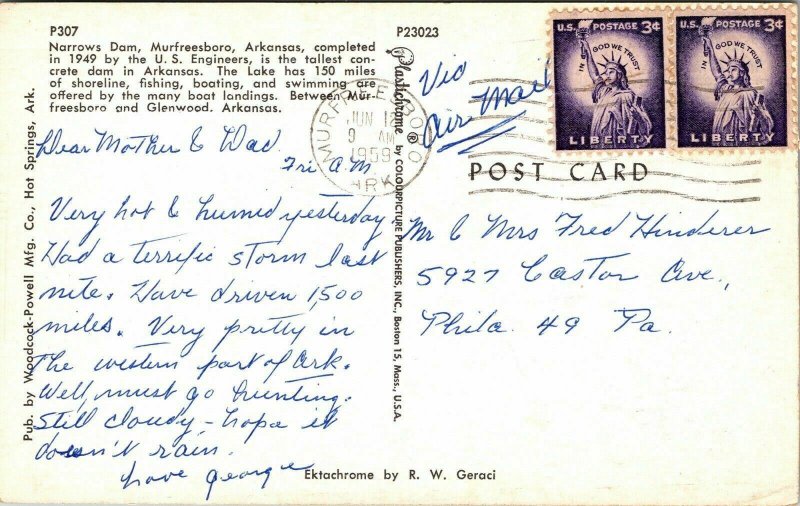 P307
Narrows Dam, Murfreesboro, Arkansas, completed
in 1949 by the U. S. Engineers, is the tallest con-
crete dam in Arkansas. The Lake has 150 miles
of shoreline, fishing, boating, and swimming are
offered by the many boat landings. Between Mur-
freesboro and Glenwood. Arkansas.
Pub. by Woodcock-Powell Mfg. Co., Hot Springs, Ark.
Dear Mother & Dad.
Fri A.M.
Very hot & humid yesterday
Had a terrific storm last
nite. Have driven 1,500
miles. Very pretty in
the western part of Ark.
Well, must go hunting.
Still cloudy - hope it
doesn't rain.
Love George
Ektachrome by R. W. Geraci
P23023
Plastichrome ® by COLOURPICTURE PUBLISHERS, INC., Boston 15, Mass., U.S.A.
MURFREESBORO
JUN 12
9 AM
1959
ARK
Via
Air Mail
U.S. POSTAGE 3¢
IN GOD WE TRUST
LIBERTY
U.S. POSTAGE 3¢
IN GOD WE TRUST
LIBERTY
POST CARD
Mr & Mrs Fred Hinderer
5927 Castor Ave.,
Phila. 49 Pa.